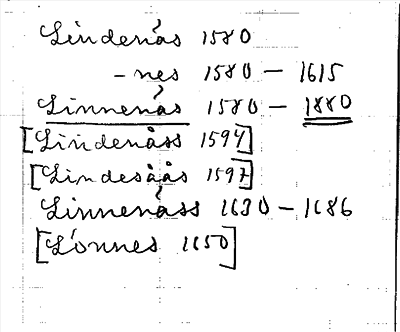 Lindenås 1580
-nes 1580 – 1615
Linnenås 1580 – 1880
[Lindenåss 1594]
[Lindesåås 1597]
Linnenåss 1630 – 1686
[Lönnes 1650]